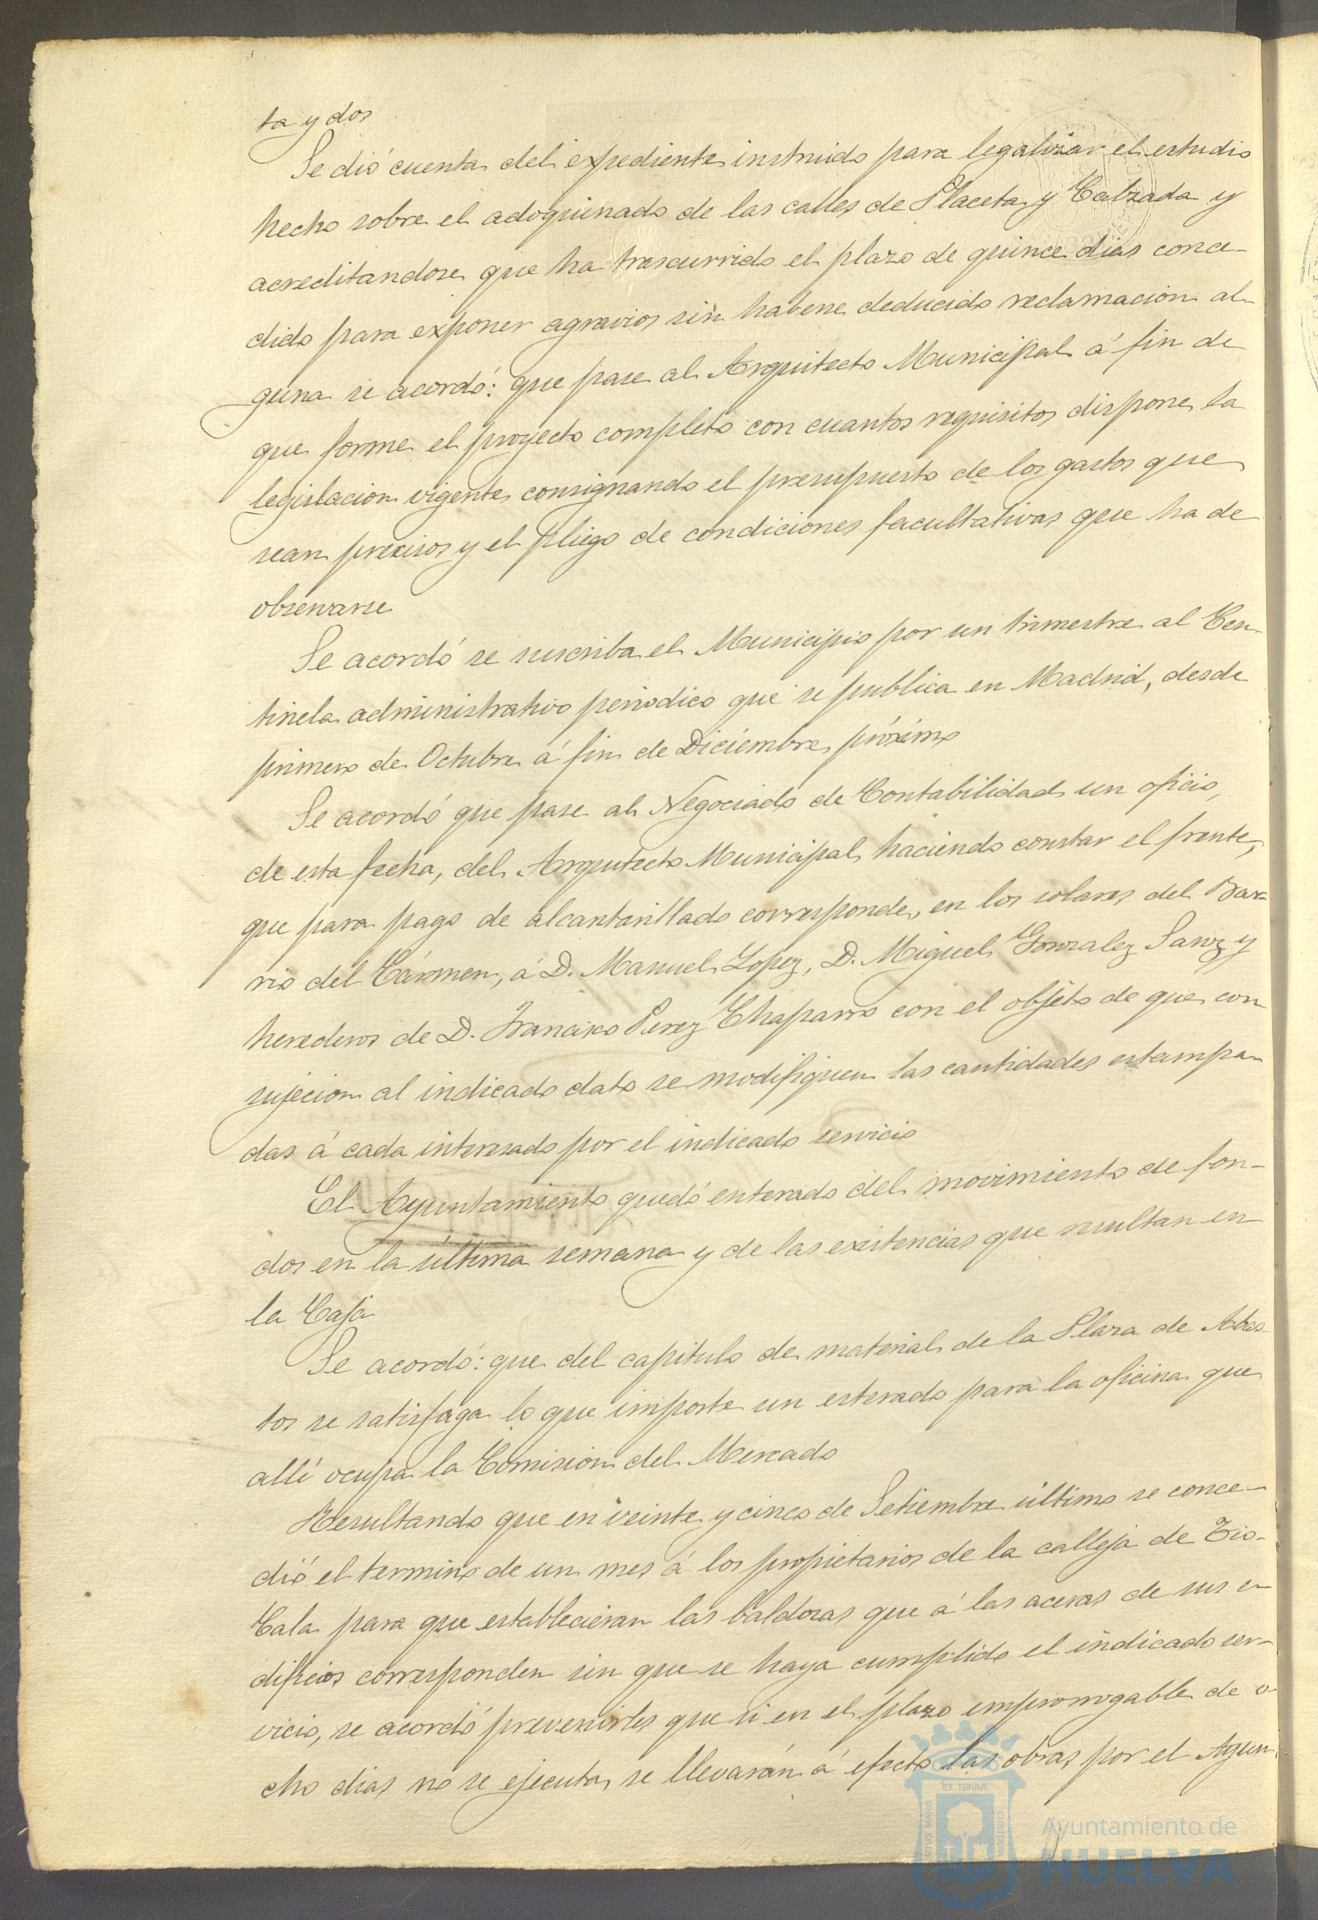 ta y dos
Se dió cuenta del expediente instruido para legalizar el estudio
hecho sobre el adoquinado de las calles de Placeta y Calzada y
acreditandose que ha trascurrido el plazo de quince dias conce-
dido para exponer agravios sin haberse deducido reclamacion al-
guna se acordó: que pase al Arquitecto Municipal á fin de
que forme el proyecto completo con cuantos requisitos dispone la
legislacion vigente consignando el presupuesto de los gastos que
sean precisos y el pliego de condiciones facultativas que ha de
observarse
Se acordó se suscriba el Municipio por un trimestre al Cen-
tinela administrativo periodico que se publica en Madrid, desde
primero de Octubre á fin de Diciembre próximo
Se acordó que pase al Negociado de Contabilidad un oficio,
de esta fecha, del Arquitecto Municipal haciendo constar el frente,
que para pago de alcantarillado corresponde, en los solares del Bar-
rio del Cármen, á D. Manuel Lopez, D. Miguel Gonzalez Sanz y
herederos de D. Francisco Perez Chaparro con el objeto de que con
sujecion al indicado dato se modifiquen las cantidades estampa-
das á cada interesado por el indicado servicio
El Ayuntamiento quedó enterado del movimiento de fon-
dos en la última semana y de las existencias que resultan en
la Caja
Se acordó: que del capitulo de material de la Plaza de Abas-
tos se satisfaga lo que importe un esterado para la oficina que
allí ocupa la Comision del Mercado
Resultando que en veinte y cinco de Setiembre último se conce-
dió el termino de un mes á los propietarios de la calleja de Tio-
Cala para que establecieran las baldosas que á las aceras de sus e-
dificios corresponden sin que se haya cumplido el indicado ser-
vicio, se acordó prevenirles que si en el plazo emprorrogable de o-
cho dias no se ejecuta, se llevarán á efecto las obras por el Ayun-
ET TERRA
CUSTODIA
PORTUS MARIS
Ayuntamiento de
HUELVA